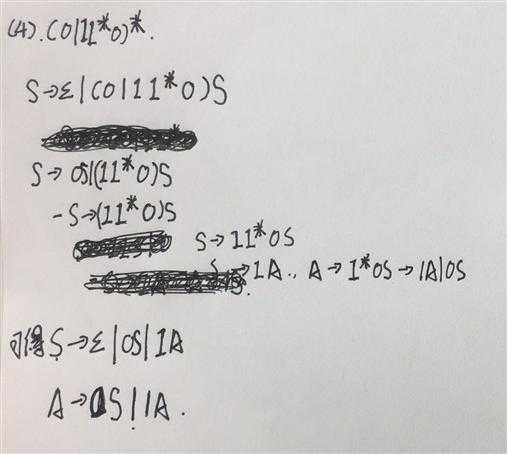 (4). (0|11*0)*.
S→ε|(0|11*0)S
S→0S|(11*0)S
-S→(11*0)S
S→11*0S
S→1A., A→1*0S→1A|0S
可得S→ε|0S|1A
A→0S|1A.